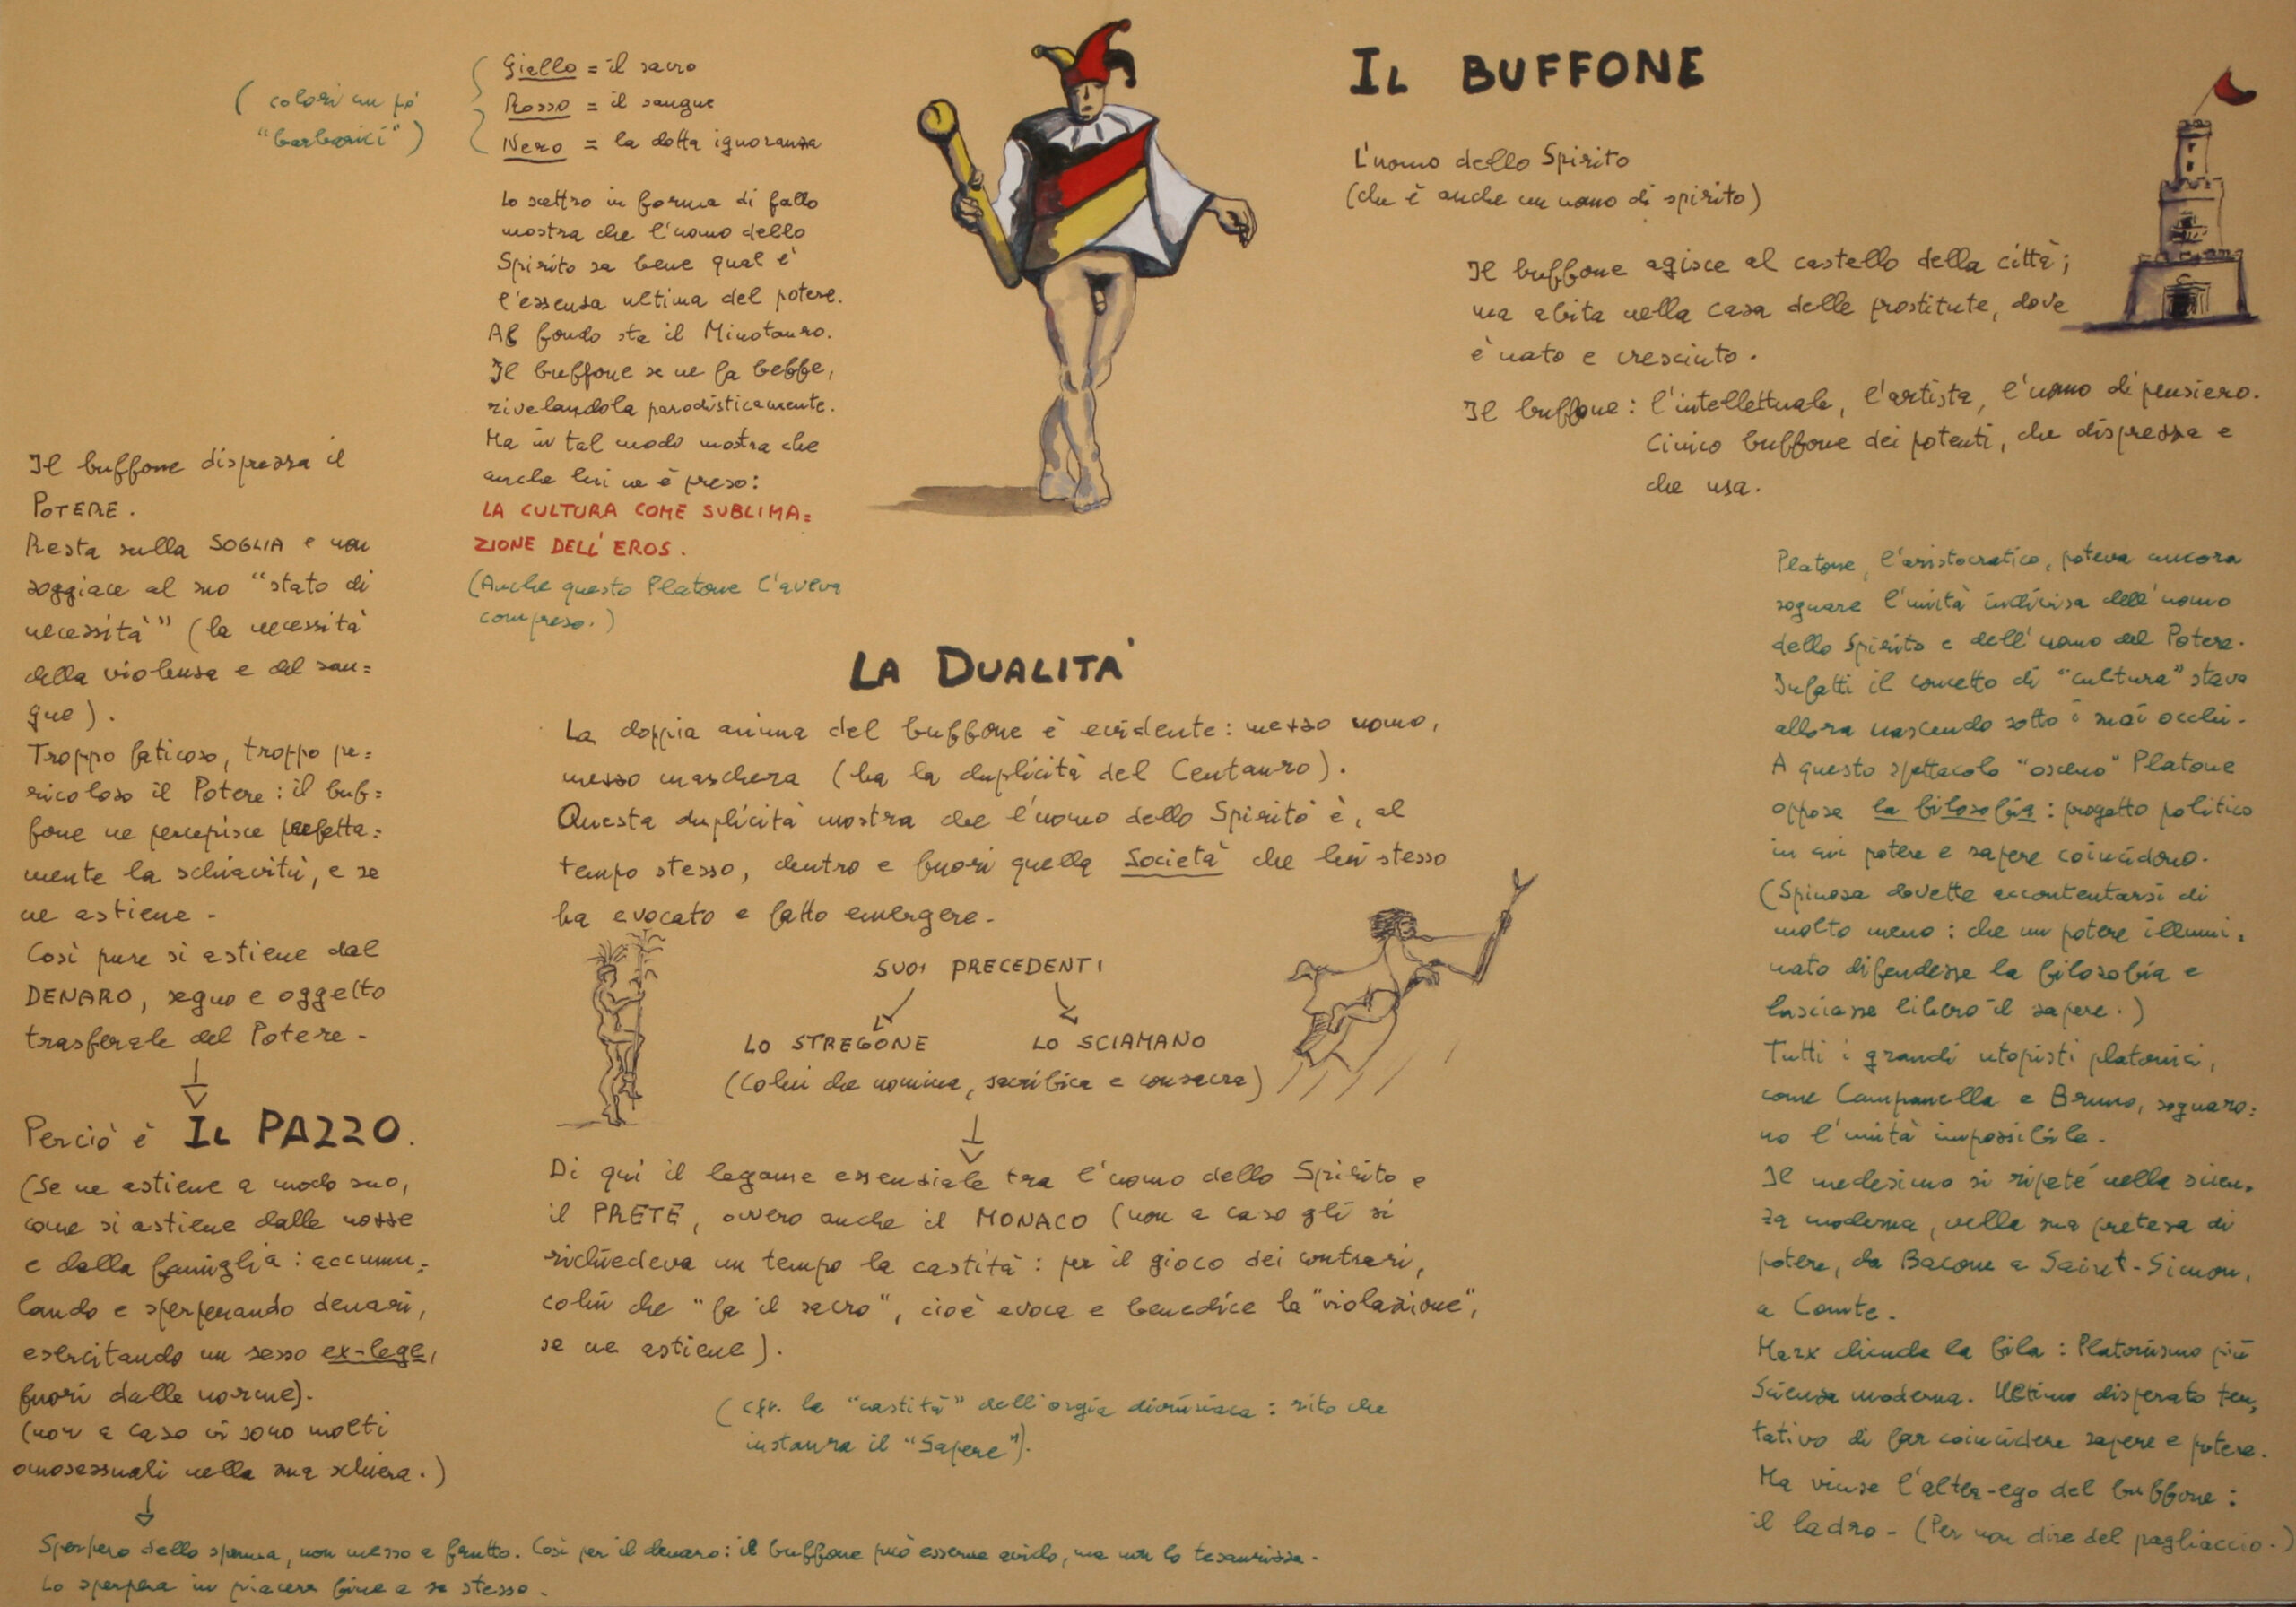 IL BUFFONE
L'uomo dello Spirito
(che è anche un uomo di spirito)
Il buffone agisce al castello della città;
ma abita nella casa delle prostitute, dove
è nato e cresciuto.
Il buffone: l'intellettuale, l'artista, l'uomo di pensiero.
Cinico buffone dei potenti, che disprezza e
che usa.
(colori un po'
"barbarici")
Giallo = il sacro
Rosso = il sangue
Nero = la dotta ignoranza
Lo scettro in forma di fallo
mostra che l'uomo dello
Spirito sa bene qual è
l'essenza ultima del potere.
Al fondo sta il Minotauro.
Il buffone se ne fa beffe,
rivelandola parodisticamente.
Ma in tal modo mostra che
anche lui ne è preso:
LA CULTURA COME SUBLIMA=
ZIONE DELL'EROS.
(Anche questo Platone l'aveva
compreso.)
Il buffone disprezza il
POTERE.
Resta sulla SOGLIA e non
soggiace al suo "stato di
necessità" (la necessità
della violenza e del san=
gue).
Troppo faticoso, troppo pe=
ricoloso il Potere: il buf=
fone ne percepisce perfetta=
mente la schiavitù, e se
ne astiene -
Così pure si astiene dal
DENARO, segno e oggetto
trasferale del Potere -
Perciò è IL PAZZO.
(Se ne astiene a modo suo,
come si astiene dalle nozze
e dalla famiglia: accumu=
lando e sperperando denari,
esercitando un sesso ex-lege,
fuori dalle norme).
(non a caso vi sono molti
omosessuali nella sua schiera.)
Sperpero dello sperma, non messo a frutto. Così per il denaro: il buffone può esserne avido, ma non lo tesaurizza.
Lo sperpera in piacere fine a se stesso.
LA DUALITA'
La doppia anima del buffone è evidente: mezzo uomo,
mezzo maschera (ha la duplicità del Centauro).
Questa duplicità mostra che l'uomo dello Spirito è, al
tempo stesso, dentro e fuori quella Società che lui stesso
ha evocato e fatto emergere.
SUOI PRECEDENTI
LO STREGONE LO SCIAMANO
(Colui che nomina, sacrifica e consacra)
Di qui il legame essenziale tra l'uomo dello Spirito e
il PRETE, ovvero anche il MONACO (non a caso gli si
richiedeva un tempo la castità: per il gioco dei contrari,
colui che "fa il sacro", cioè evoca e benedice la "violazione",
se ne astiene).
(cfr. la "castità" dell'orgia dionisiaca: rito che
instaura il "Sapere").
Platone, l'aristocratico, poteva ancora
sognare l'unità indivisa dell'uomo
dello Spirito e dell'uomo del Potere.
Infatti il concetto di "cultura" stava
allora nascendo sotto i suoi occhi.
A questo spettacolo "osceno" Platone
oppose la filosofia: progetto politico
in cui potere e sapere coincidono.
(Spinosa dovette accontentarsi di
molto meno: che un potere illumi=
nato difendesse la filosofia e
lasciasse libero il sapere.)
Tutti i grandi utopisti platonici,
come Campanella e Bruno, sognaro=
no l'unità impossibile.
Il medesimo si ripeté nella scien=
za moderna, nella sua pretesa di
potere, da Bacone a Saint-Simon,
a Comte.
Marx chiude la fila: Platonismo più
Scienza moderna. Ultimo disperato ten=
tativo di far coincidere sapere e potere.
Ma vinse l'alter-ego del buffone:
il ladro - (Per non dire del pagliaccio.)